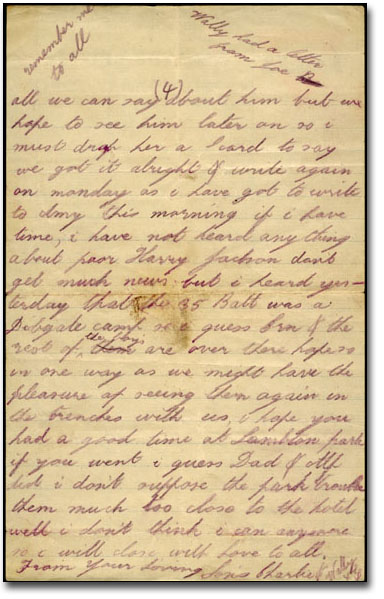 remember me
to all
Wally had a letter
from Joe
(4)
all we can say about him but we
hope to see him later on so i
must drop her a card to say
we got it alright & write again
on monday as i have got to write
to Amy this morning if i have
time, i have not heard any thing
about poor Harry Jackson dont
get much news but i heard yes-
terday that the 35 Batt was a
Dibgate camp so i guess & the
rest of the boys are over there hope so
in one way as we might have the
pleasure of seeing them again in
the trenches with us, i hope you
had a good time at Lambton park
if you went i guess Dad & Alf
did i don't suppose the park trouble
them much too close to the hotel
well i don't think i can anymore
so i will close with Love to all.
From Your Loving Sons Charlie & Wally